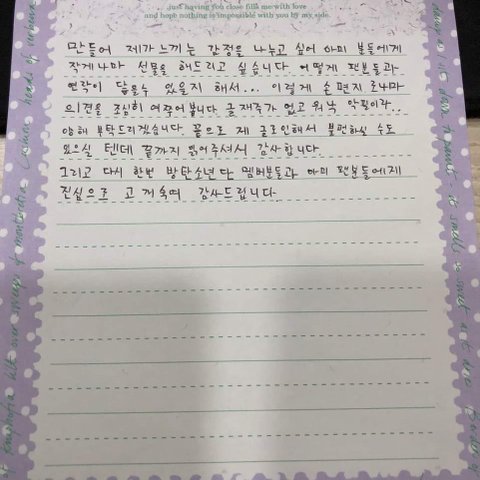 just having you close fills me with love
and hope nothing is impossible with you by my side.
만들어 제가느끼는 감정을 나누고 싶어 아미 분들에게
작게나마 선물을 해드리고 싶습니다. 어떻게 팬분들과
연락이 닿을수 있을지 해서... 이렇게 손편지 로나마
의견을 조심히 여쭈어봅니다. 글재주가 없고 워낙 악필이라..
양해 부탁드리겠습니다. 끝으로 제 글로인해서 불편하실 수도
있으실 텐데 끝까지 읽어주셔서 감사합니다.
그리고 다시 한번 방탄소년단 멤버분들과 아미 팬분들에게
진심으로 고개숙여 감사드립니다.